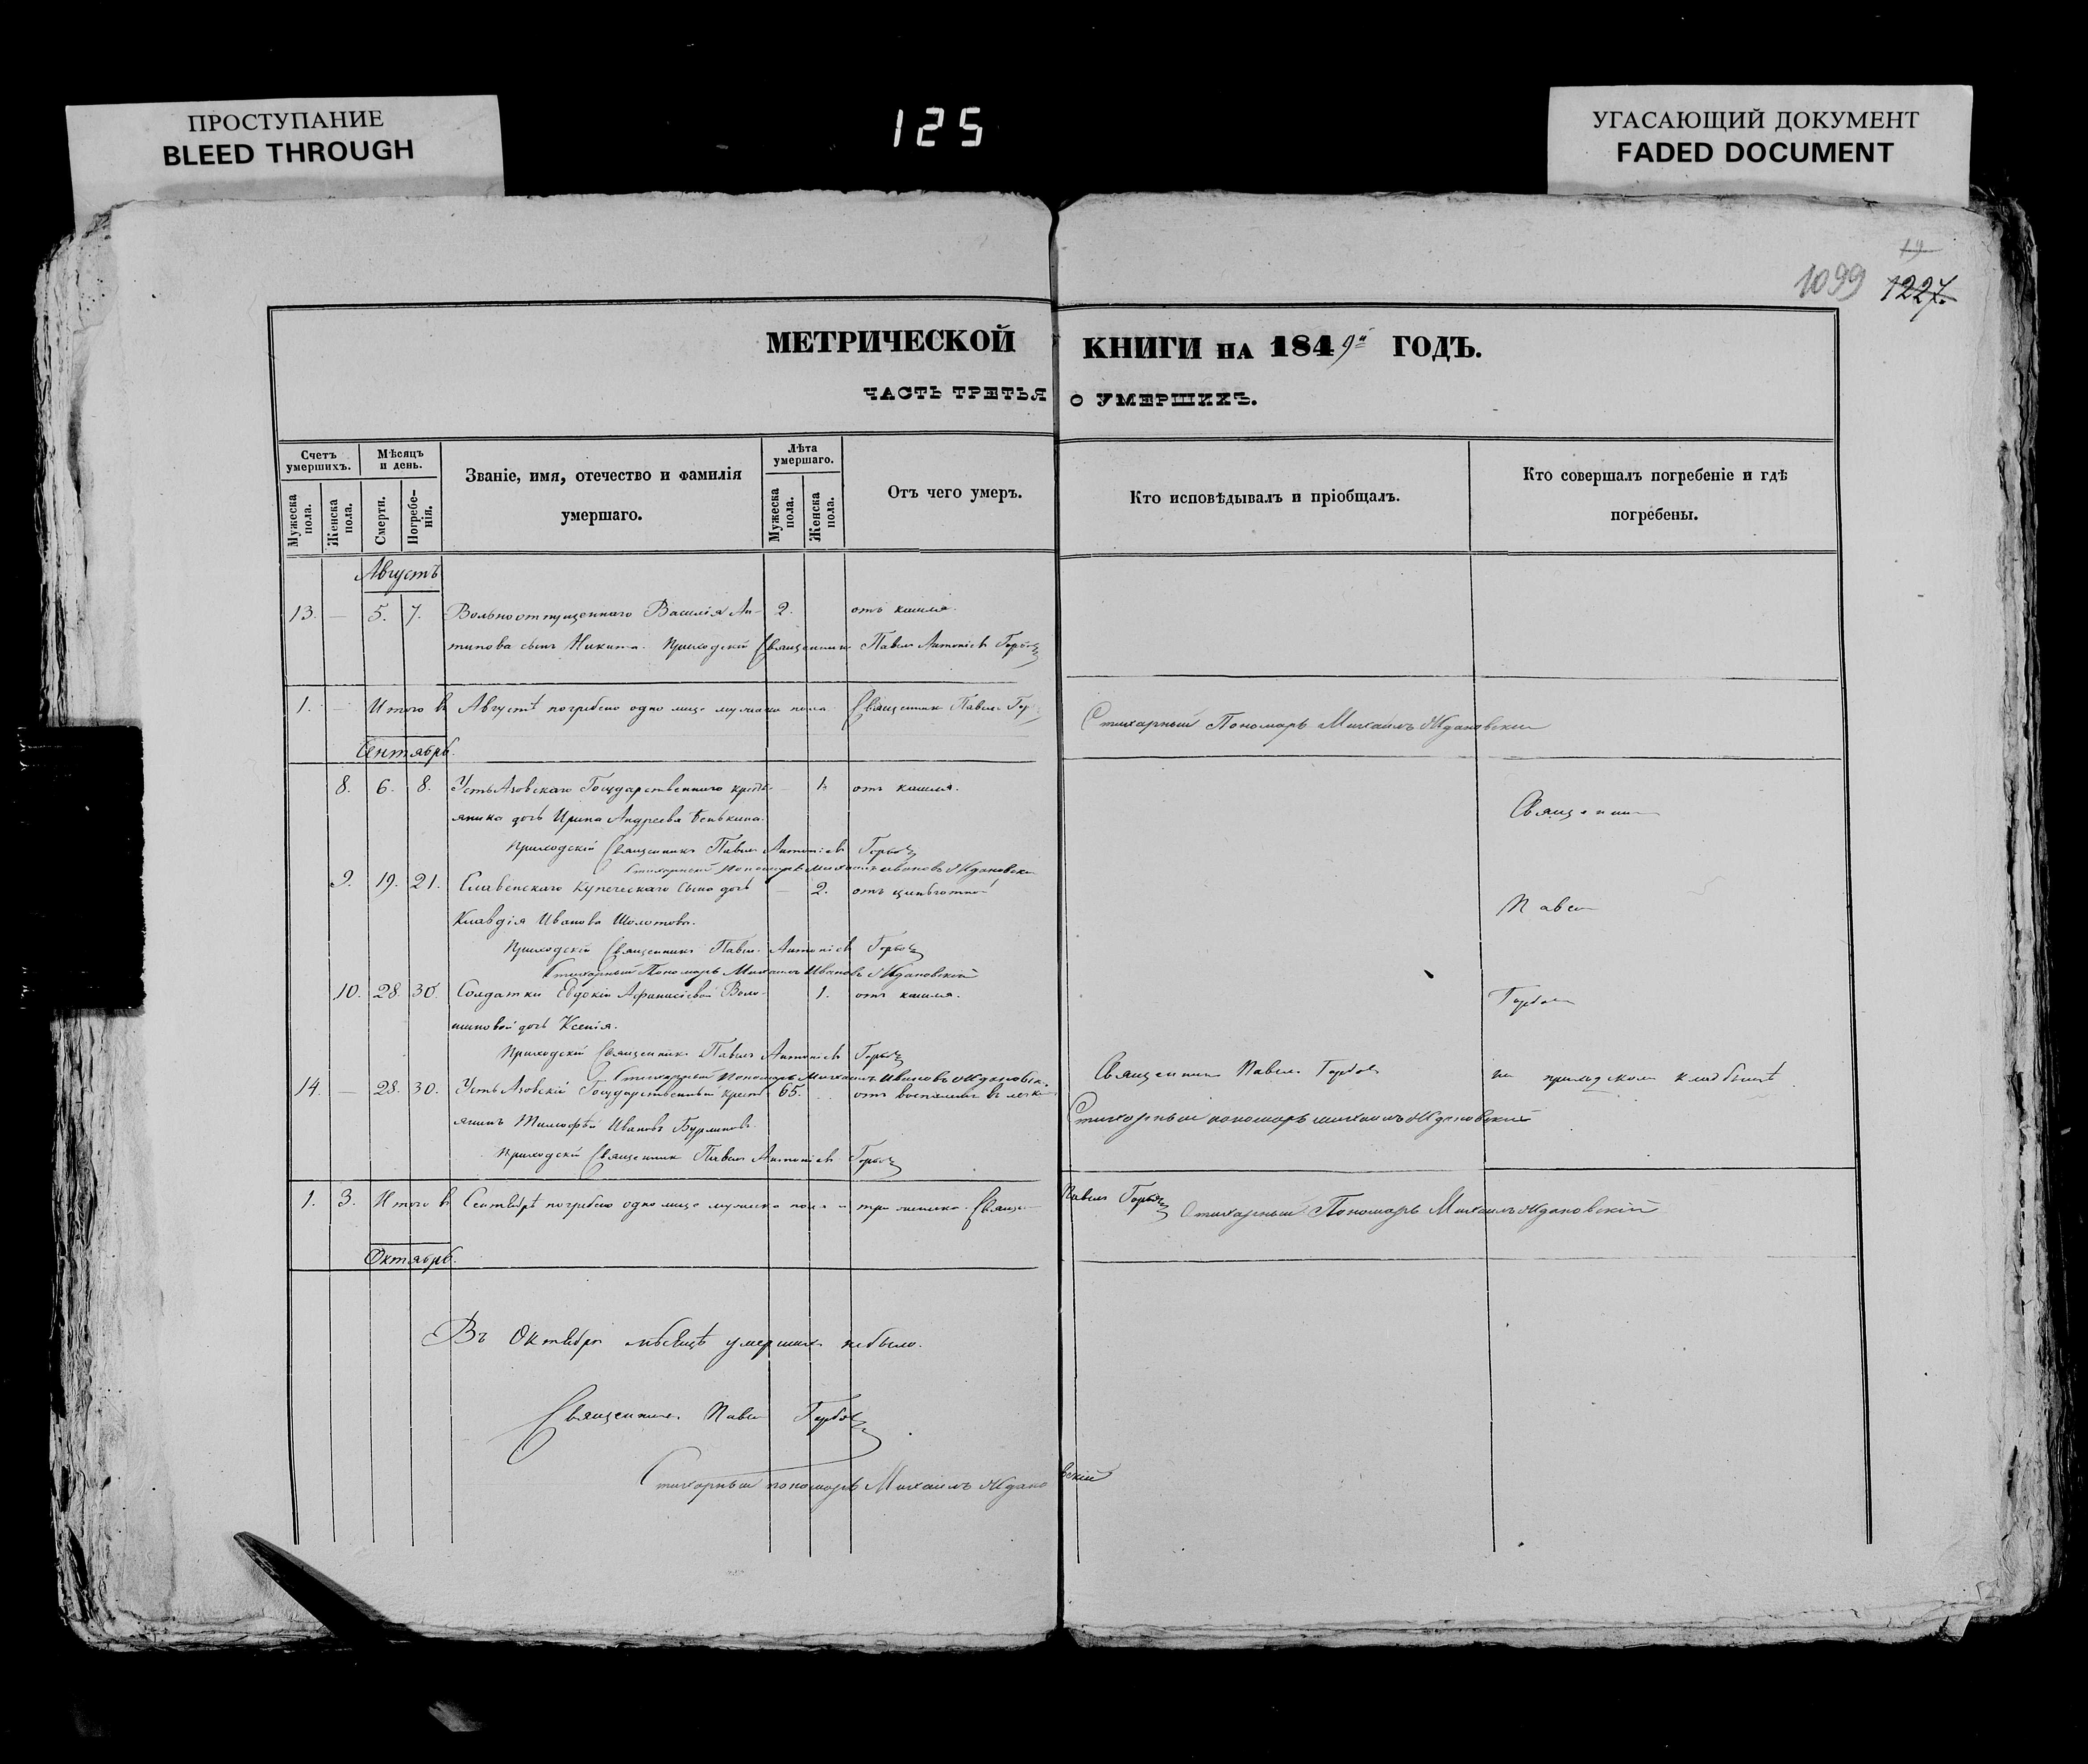 ПРОСТУПАНИЕ
BLEED THROUGH
125
УГАСАЮЩИЙ ДОКУМЕНТ
FADED DOCUMENT
19
1099 1227.
МЕТРИЧЕСКОЙ КНИГИ НА 1849й ГОДЪ.
ЧАСТЬ ТРЕТЬЯ О УМЕРШИХЪ.
Счетъ умершихъ.
Мѣсяцъ и день.
Званіе, имя, отечество и фамилія умершаго.
Лѣта умершаго.
Отъ чего умеръ.
Кто исповѣдывалъ и пріобщалъ.
Кто совершалъ погребеніе и гдѣ погребены.
Мужеска пола.
Женска пола.
Смерти.
Погребе-нія.
Мужеска пола.
Женска пола.
Августъ
13. — 5. 7. Вольноотпущеннаго Василія Ан- 2. отъ кашля.
типова сынъ Никита. Приходскій Священникъ Павелъ Антоніевъ Горбов
1. — Итого въ Августѣ погребено одно лице мужеска пола. Священникъ Павелъ
Стихарный Пономарь Михаилъ Ждановскій
Сентябрь.
8. 6. 8. Усть Азовскаго Государственнаго кресть- — 1. отъ кашля.
янина дочь Ирина Андреева
Священникъ
Приходскій Священникъ Павелъ Антоніевъ Горбов
Стихарный Пономарь Михаилъ Ивановъ Ждановскій
9. 19. 21. Славенскаго Купеческаго сына дочь — 2. отъ цынготной
Клавдія Иванова
Павел
Приходскій Священникъ Павелъ Антоніевъ Горбов
Стихарный Пономарь Михаилъ Ивановъ Ждановскій
10. 28. 30. Солдатки Евдокіи Афанасіевой Воло- 1. отъ кашля.
шиновой дочь Ксенія.
Горбов
Приходскій Священникъ Павелъ Антоніевъ Горбов
Стихарный Пономарь Михаилъ Ивановъ Ждановск.
14. — 28. 30. Усть Азовскій Государственный кресть- 65. отъ воспаленія въ легки
Священникъ Павелъ Горбов на приходскомъ кладбищѣ
янинъ Тимофѣй Ивановъ Бурлаковъ.
Стихарный пономарь михаилъ Ждановскій
Приходскій Священникъ Павелъ Антоніевъ Горбов
1. 3. Итого въ Сентябрѣ погребено одно лице мужеска пола и три женска. Священ
Павелъ Горбов Стихарный Пономарь Михаилъ Ждановскій
Октябрь.
Въ Октябрѣ мѣсяцѣ умершихъ небыло.
Священникъ Павел Горбов
Стихарный пономарь Михаилъ Ждановскій